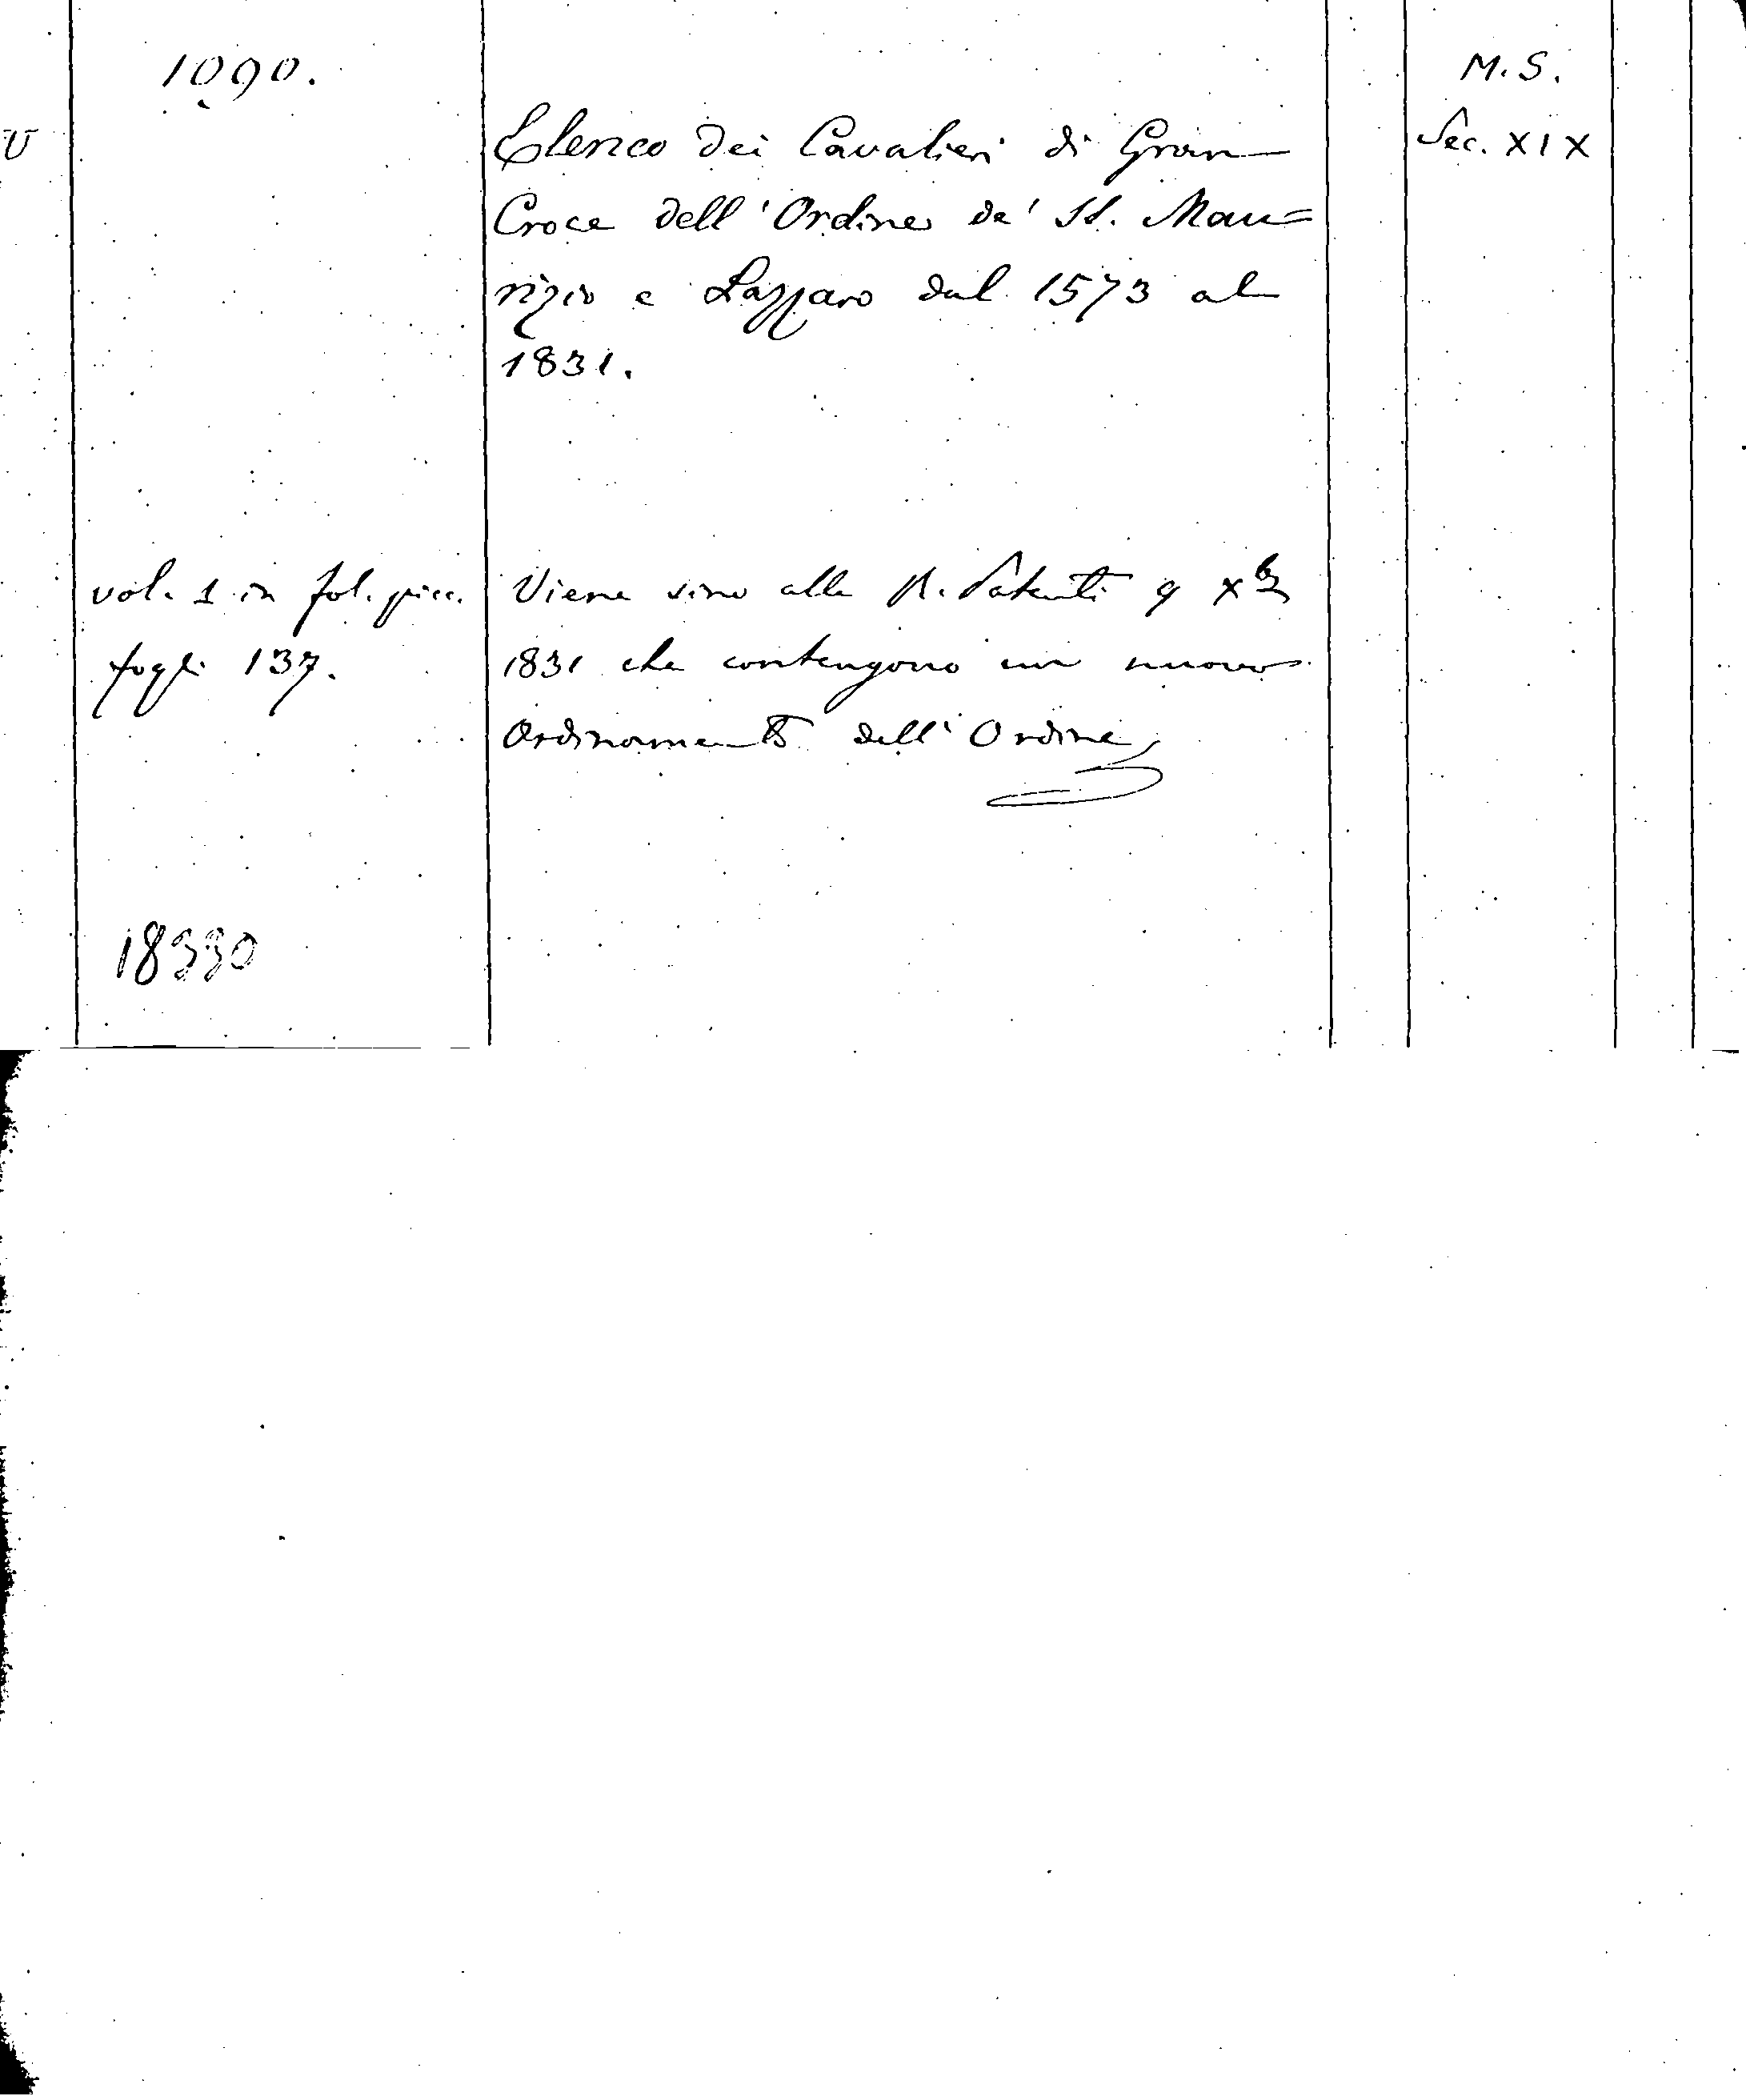 1090.
M.S.
V
Elenco dei Cavalieri di Gran
Sec. XIX
Croce dell'Ordine de' SS. Mau=
rizio e Lazzaro dal 1573 al
1831.
vol. 1 in fol. picc.
Viene sino alle R. Patenti 9 Xbre
fogli 137.
1831 che contengono un nuovo
Ordinamento dell'Ordine
18330